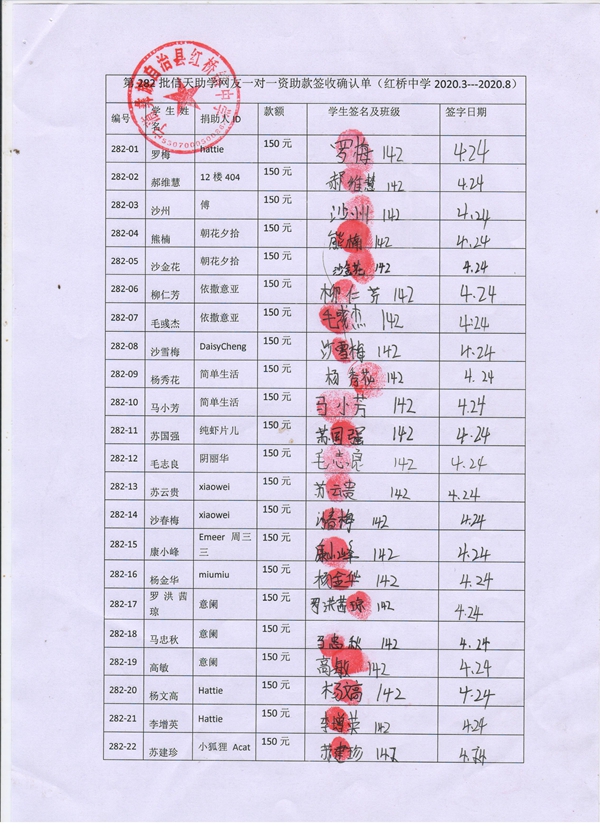 第 282 批信天助学网友一对一资助款签收确认单（红桥中学 2020.3---2020.8）
编号 学生姓名 捐助人 ID 款额 学生签名及班级 签字日期
282-01 罗梅 hattie 150 元 罗梅 142 4.24
282-02 郝维慧 12 楼 404 150 元 郝维慧 142 4.24
282-03 沙州 傅 150 元 沙州 142 4.24
282-04 熊楠 朝花夕拾 150 元 熊楠 142 4.24
282-05 沙金花 朝花夕拾 150 元 沙金花 142 4.24
282-06 柳仁芳 依撒意亚 150 元 柳仁芳 142 4.24
282-07 毛彧杰 依撒意亚 150 元 毛彧杰 142 4.24
282-08 沙雪梅 DaisyCheng 150 元 沙雪梅 142 4.24
282-09 杨秀花 简单生活 150 元 杨秀花 142 4.24
282-10 马小芳 简单生活 150 元 马小芳 142 4.24
282-11 苏国强 纯虾片儿 150 元 苏国强 142 4.24
282-12 毛志良 阴丽华 150 元 毛志良 142 4.24
282-13 苏云贵 xiaowei 150 元 苏云贵 142 4.24
282-14 沙春梅 xiaowei 150 元 沙春梅 142 4.24
282-15 康小峰 Emeer 周三三 150 元 康小峰 142 4.24
282-16 杨金华 miumiu 150 元 杨金华 142 4.24
282-17 罗洪茜琼 意阑 150 元 罗洪茜琼 142 4.24
282-18 马忠秋 意阑 150 元 马忠秋 142 4.24
282-19 高敏 意阑 150 元 高敏 142 4.24
282-20 杨文高 Hattie 150 元 杨文高 142 4.24
282-21 李增英 Hattie 150 元 李增英 142 4.24
282-22 苏建珍 小狐狸 Acat 150 元 苏建珍 142 4.24